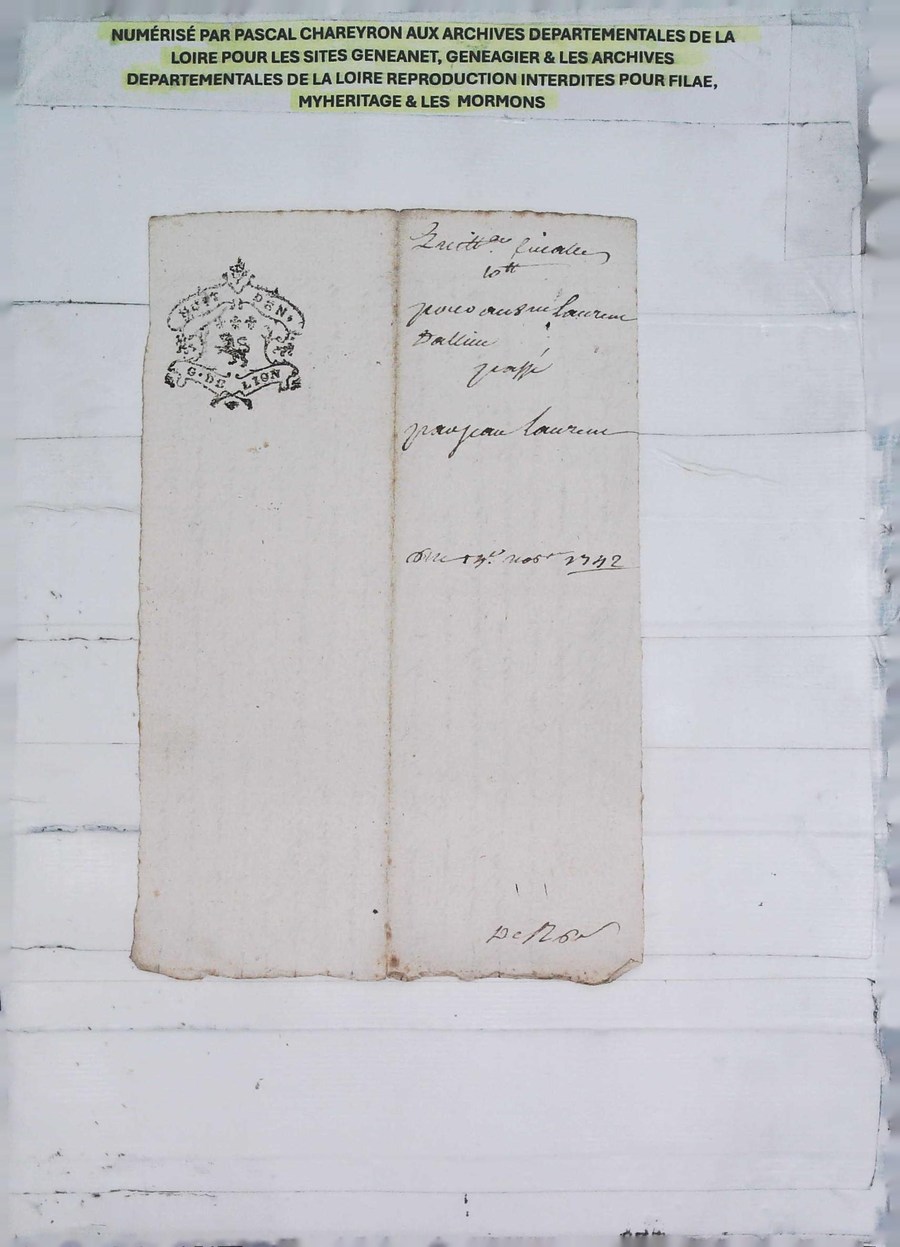 NUMÉRISÉ PAR PASCAL CHAREYRON AUX ARCHIVES DEPARTEMENTALES DE LA
LOIRE POUR LES SITES GENEANET, GENEAGIER & LES ARCHIVES
DEPARTEMENTALES DE LA LOIRE REPRODUCTION INTERDITES POUR FILAE,
MYHERITAGE & LES MORMONS
HUIT DEN.
G. DE LION
Quitt.ce finalle
10tt
pour Laurens
passé
par jean Laurens
1742